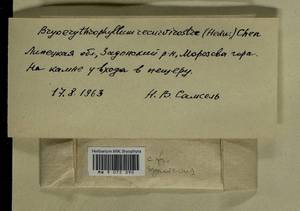 Bryoerythrophyllum recurvirostre (Hedw.) Chen
Липецкая обл, Задонский р-н, Морозова гора.
На камне у входа в пещеру.
17.8.1963 Н. В. Самсель
Herbarium MW, Bryophyta
MW 9 073 890